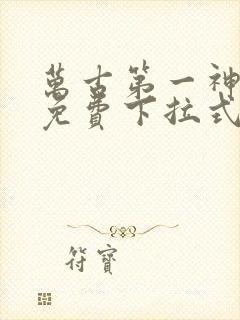 萬古第一神
免費下拉式
符寶